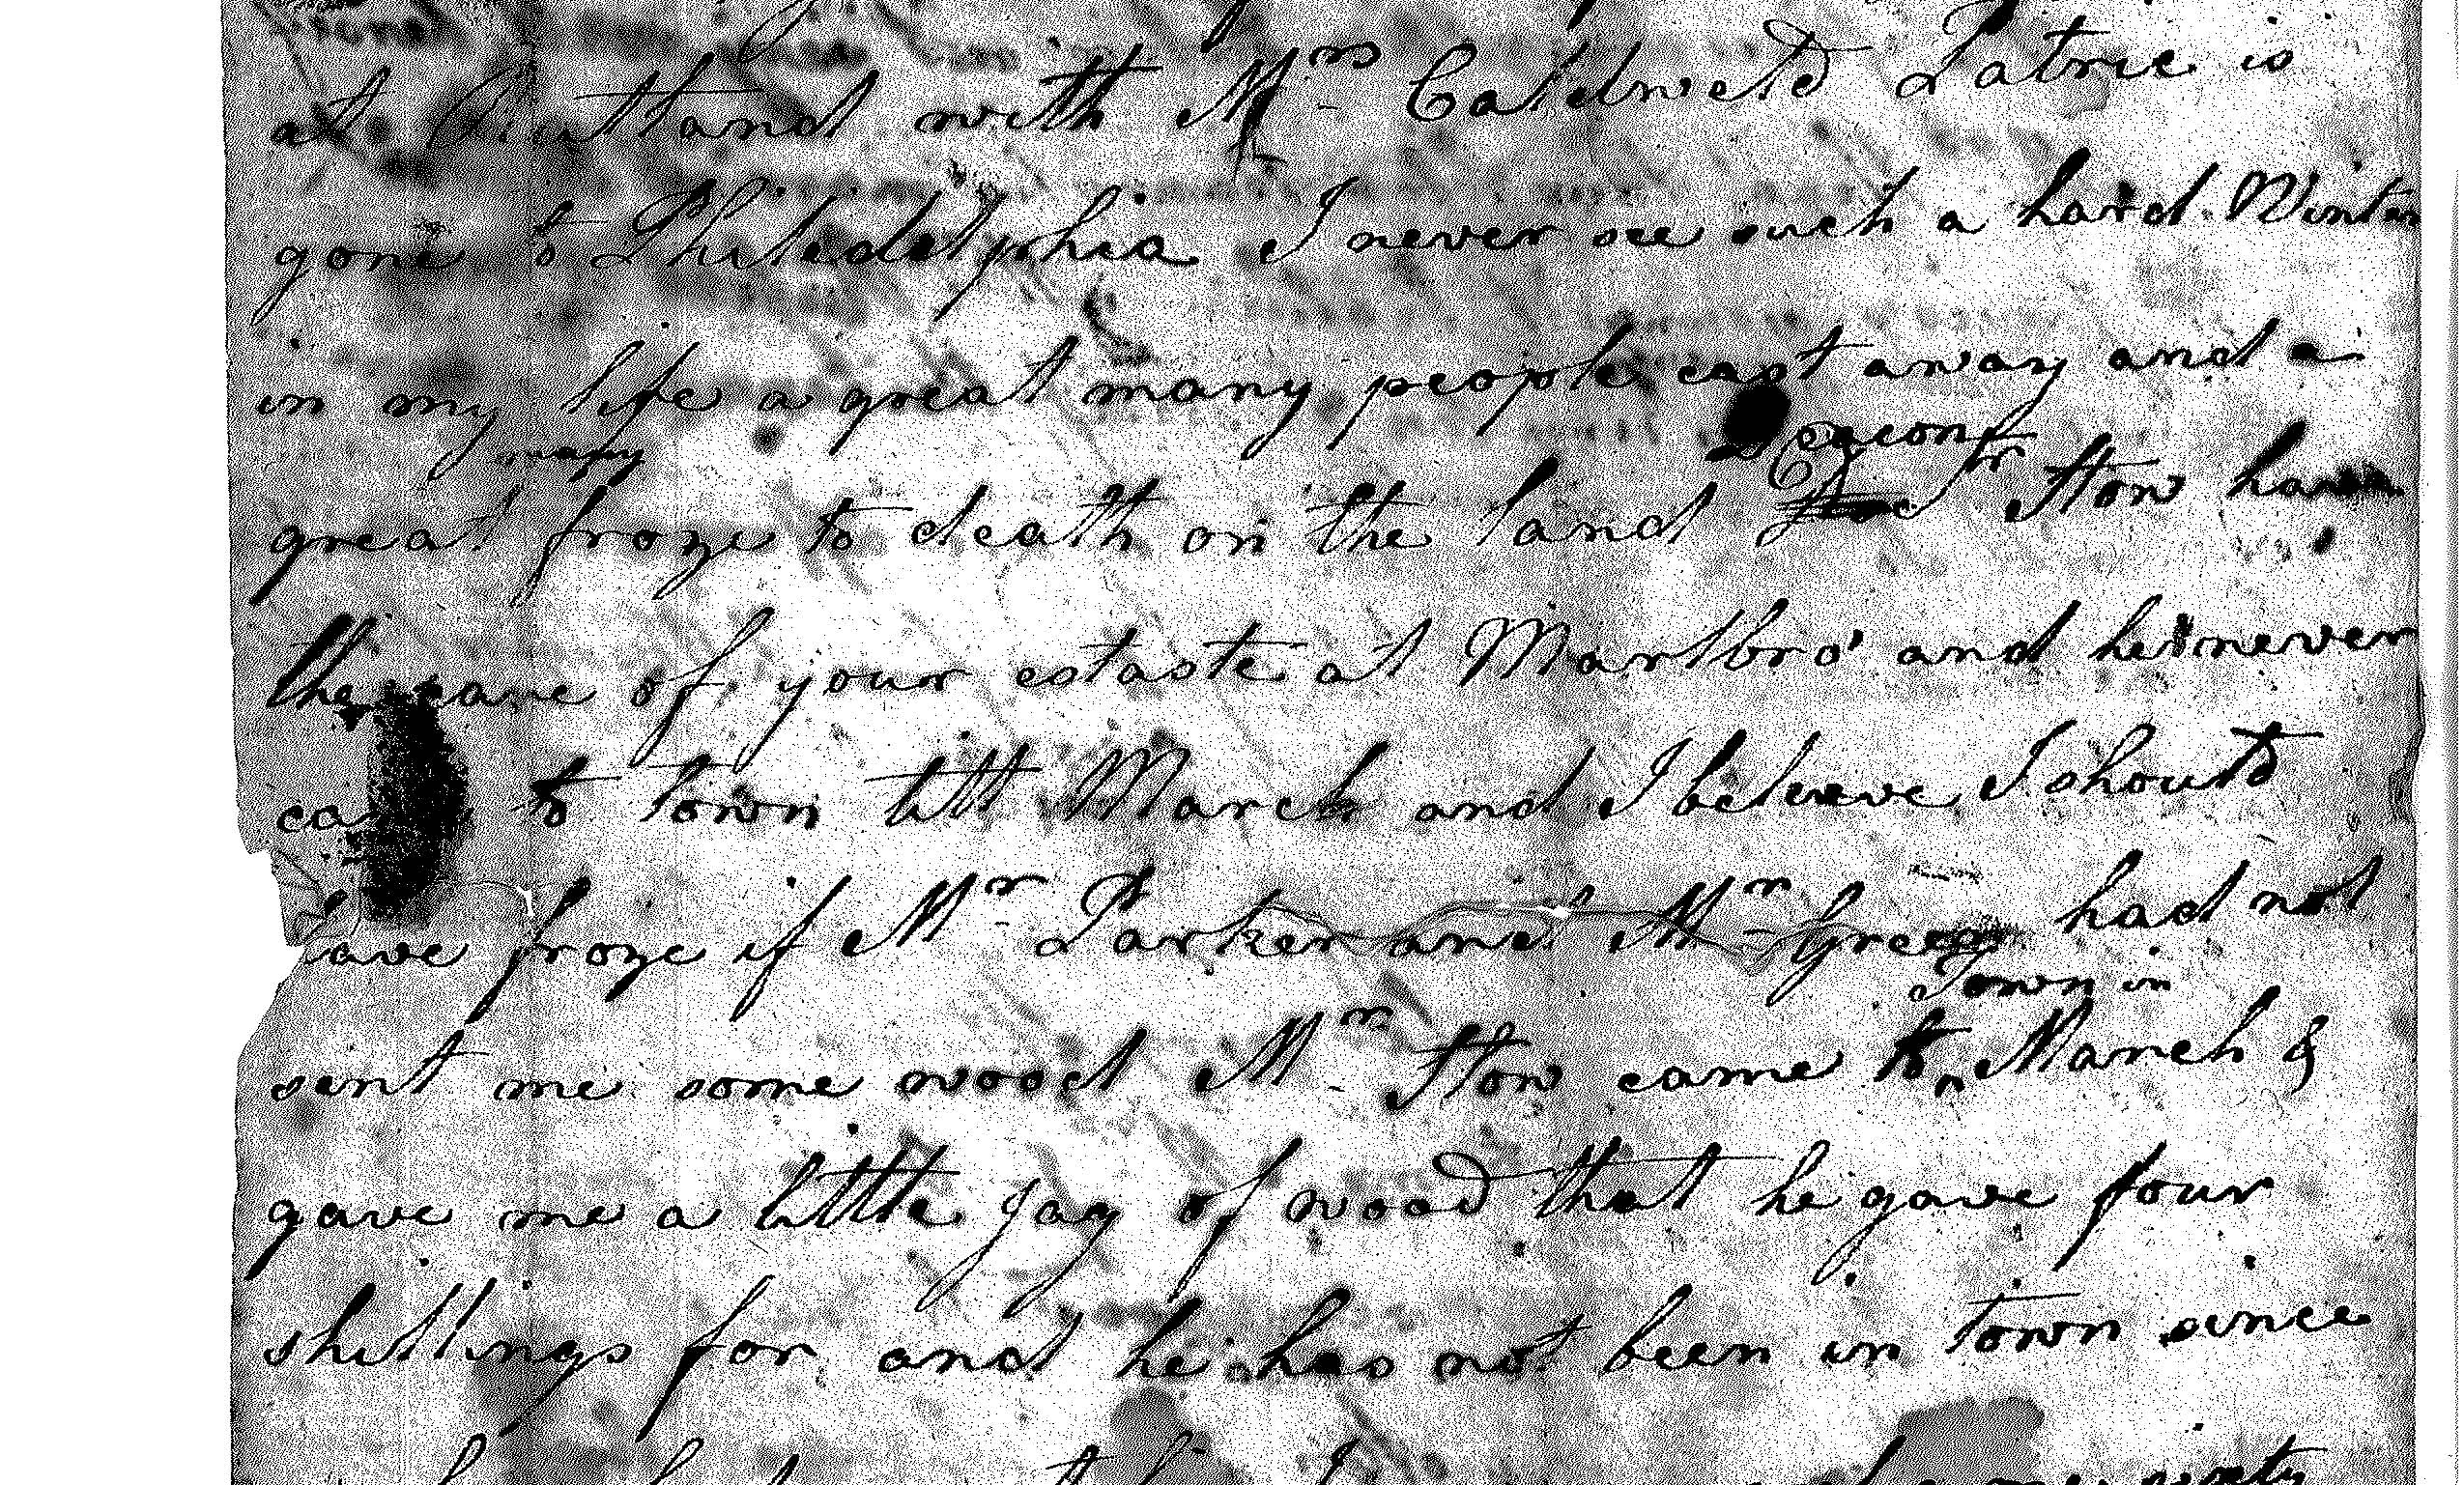 at Rutland with Mrs Caldweld Patrie is
gone to Philedelphia I never see such a hard Winter
in my life a great many people cast away and a
many Deacon
great froze to death on the land Stow have
the care of your estaste at Marlbro' and he never
to town till March and I believe I should
have froze if Mr Parker and Mr Green had not
Town in
sent me some wood Mr Stow came to March &
gave me a little Jag of wood that he gave four
shillings for and he has not been in town since